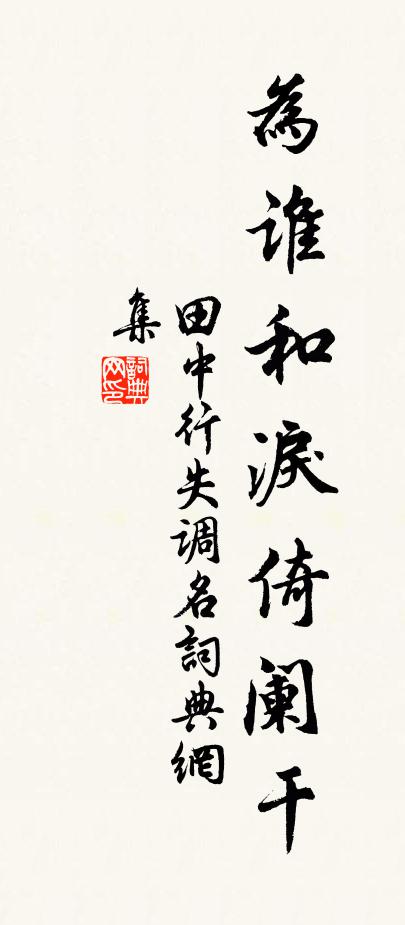 為誰和淚倚闌干
田中行失调名詞典網
集
詞典网印